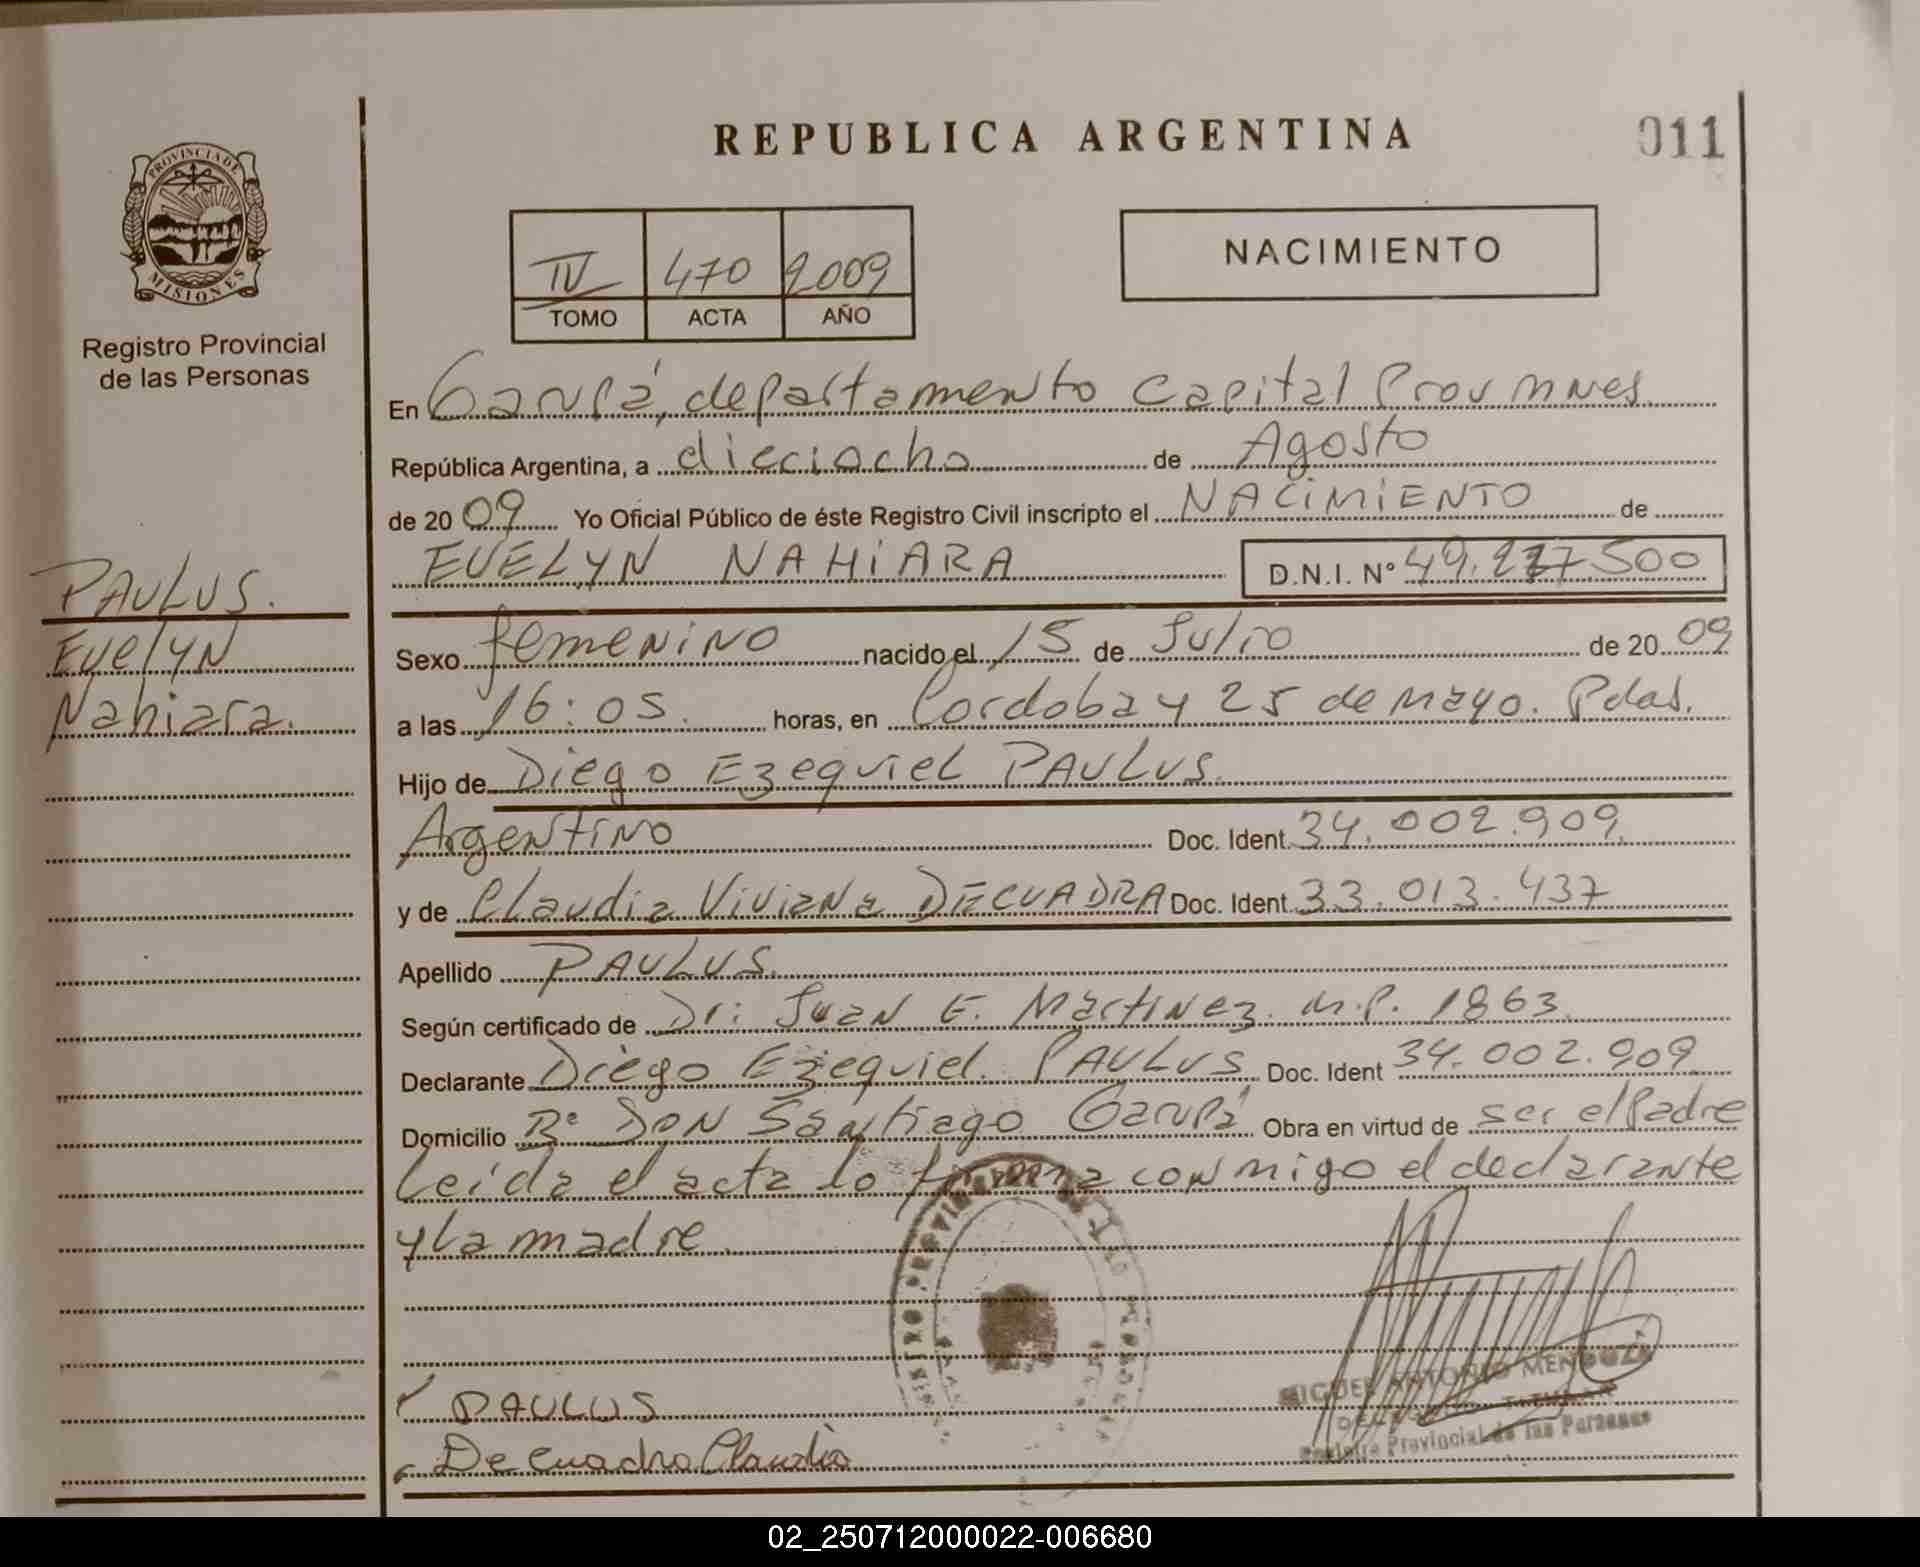 REPUBLICA ARGENTINA
011
PROVINCIA DE
MISIONES
Registro Provincial
de las Personas
IV 470 2009
TOMO ACTA AÑO
NACIMIENTO
En Garupá, departamento Capital Prov Mnes
República Argentina, a dieciocho de Agosto
de 2009 Yo Oficial Público de éste Registro Civil inscripto el NACIMIENTO de
EVELYN NAHIARA D.N.I. Nº 49.227.500
PAULUS.
Evelyn
Nahiara.
Sexo femenino nacido el 15 de Julio de 2009
a las 16:05. horas, en Cordoba y 25 de Mayo. Pdas.
Hijo de Diego Ezequiel PAULUS.
Argentino Doc. Ident. 34.002.909.
y de Claudia Viviana DECUADRA Doc. Ident. 33.013.437
Apellido PAULUS.
Según certificado de Dr: Juan E. Martinez. M.P. 1863.
Declarante Diego Ezequiel. PAULUS Doc. Ident 34.002.909.
Domicilio Bº Don Santiago Garupá Obra en virtud de ser el Padre
Leida el acta lo firma conmigo el declarante
y la madre.
PAULUS
Decuadra Claudia
MIGUEL ANTONIO MENDOZA
DELEGADO TITULAR
Registro Provincial de las Personas
02_250712000022-006680